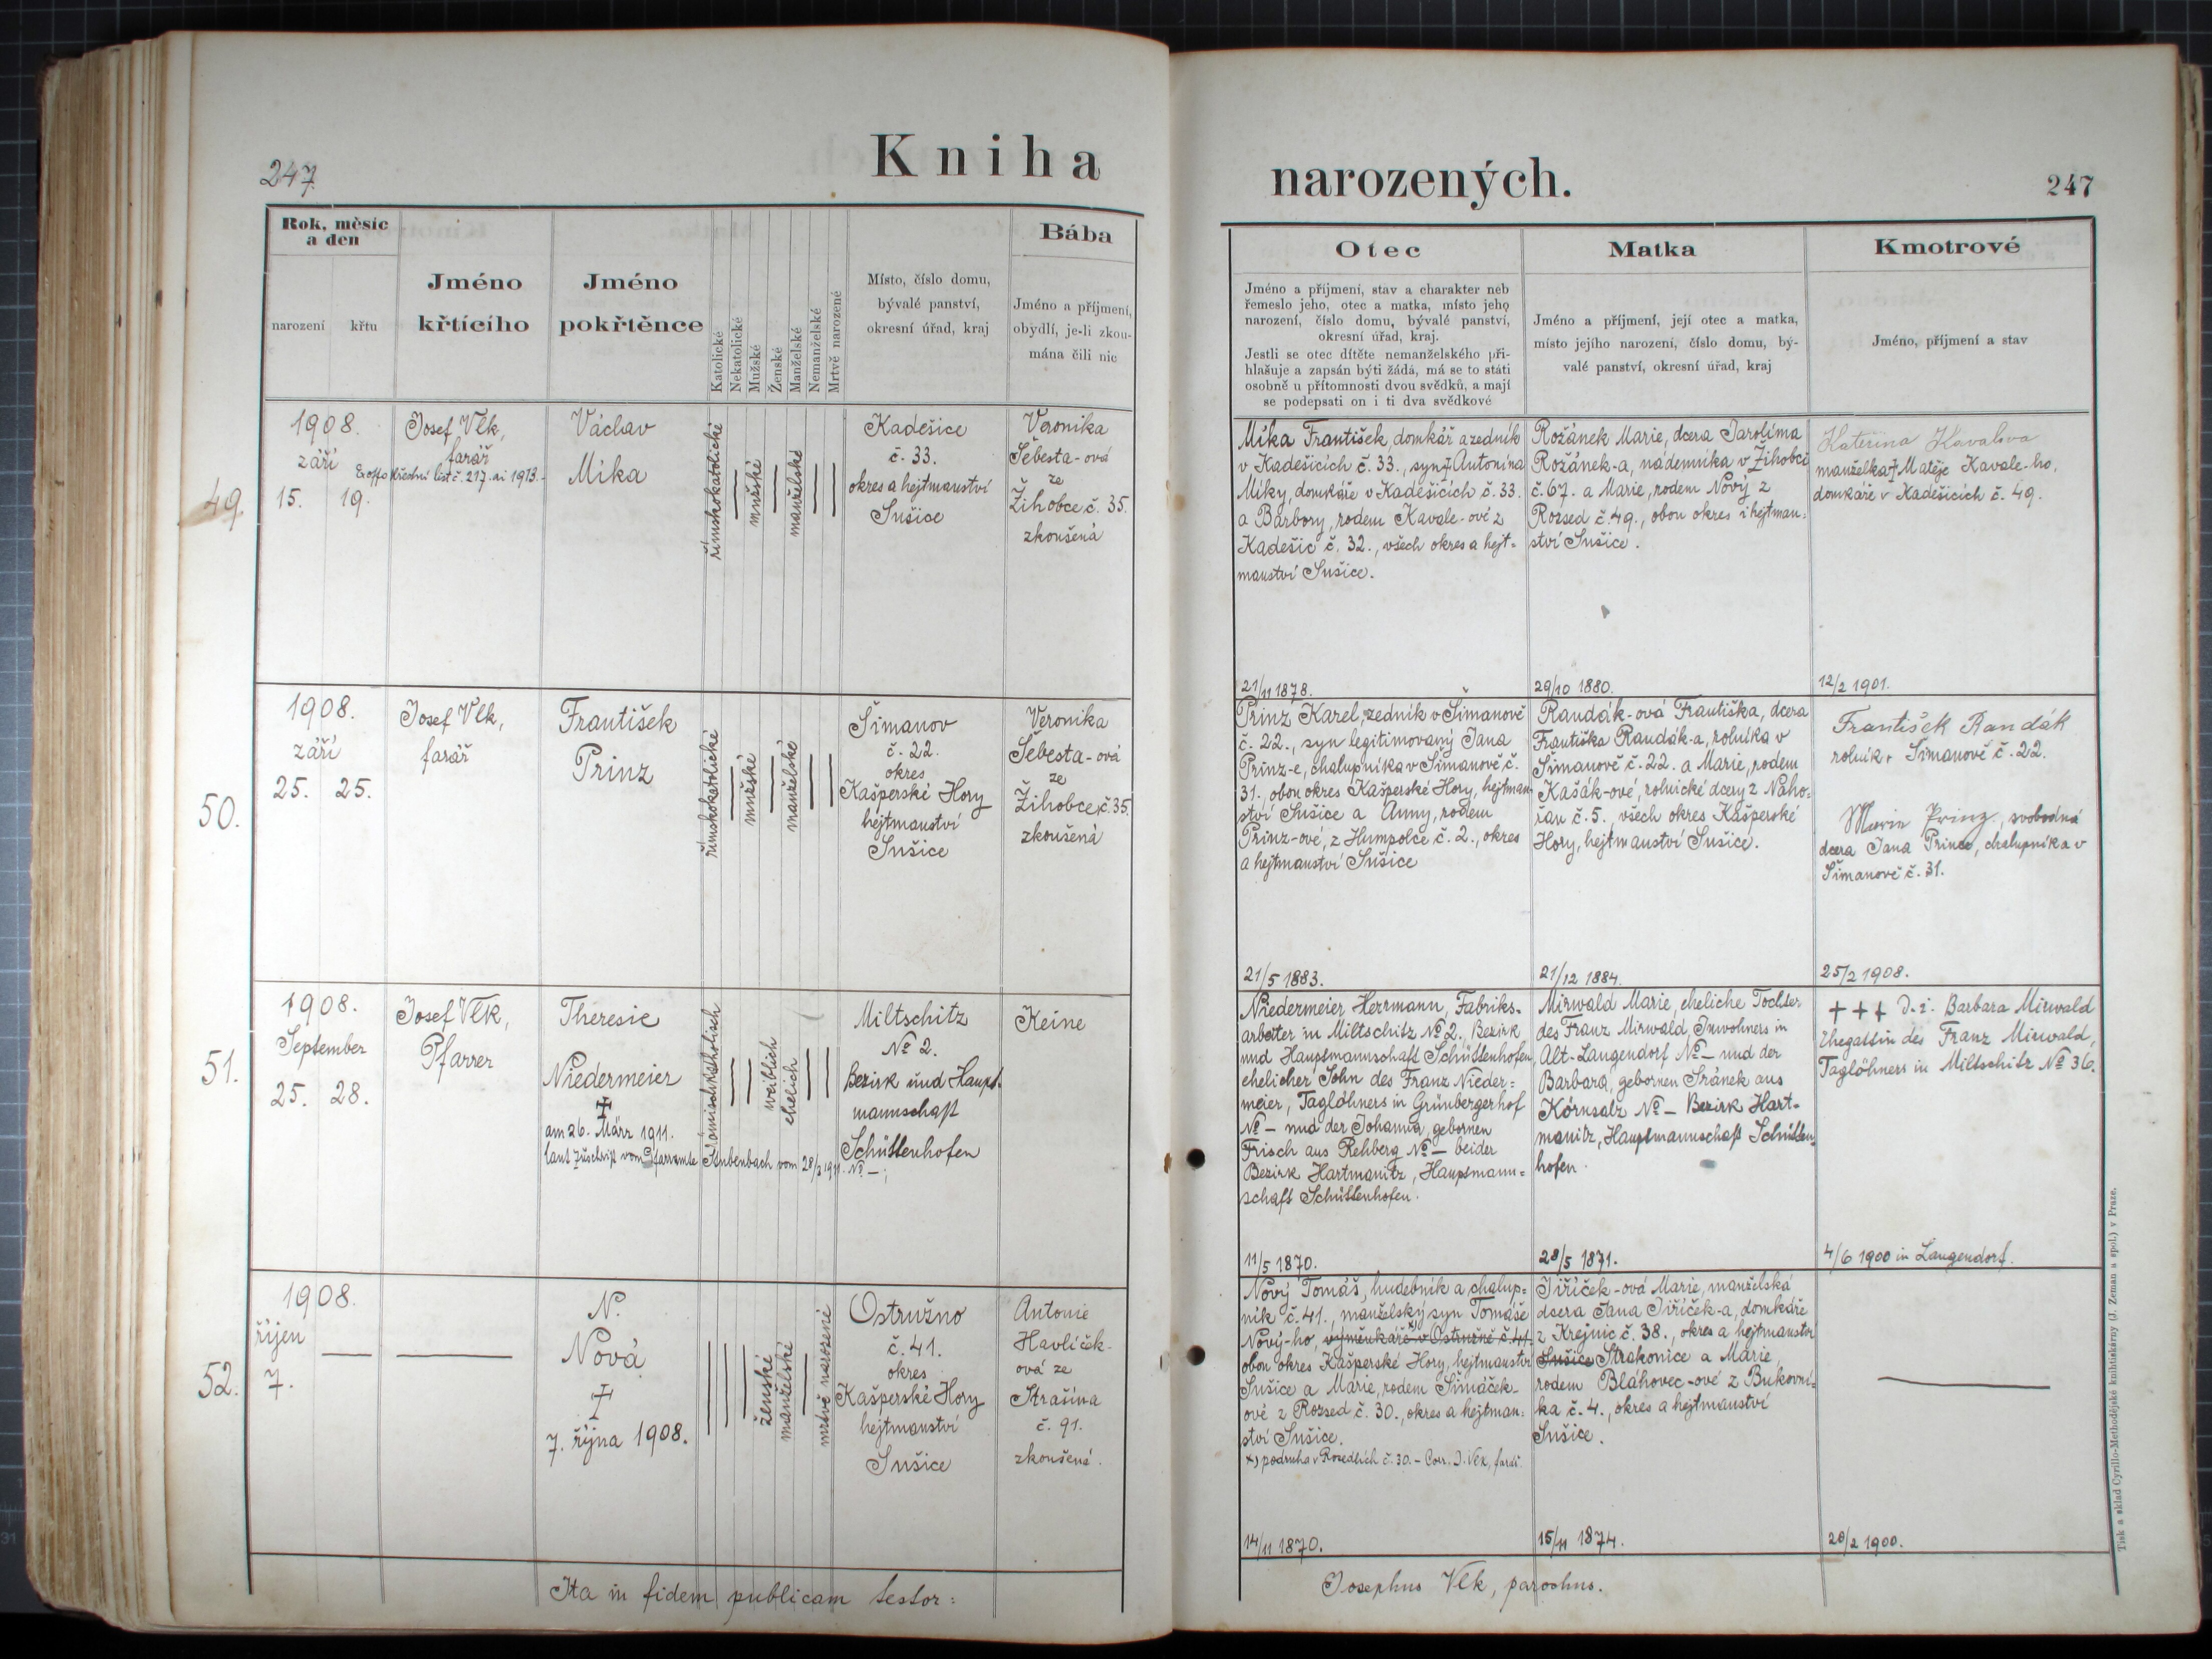 247
Kniha
Rok, měsíc
a den
narození
křtu
Jméno
křtícího
Jméno
pokřtěnce
Katolické
Nekatolické
Mužské
Ženské
Manželské
Nemanželské
Mrtvě narozené
Místo, číslo domu,
bývalé panství,
okresní úřad, kraj
Bába
Jméno a příjmení,
obydlí, je-li zkou-
mána čili nic
49.
1908.
září
15. 19.
Ex offo křestní list č. 217. ai 1913.
Josef Vlk,
farář
Václav
Míka
římskokatolické
mužské
manželské
Kadešice
č. 33.
okres a hejtmanství
Sušice
Veronika
Šebesta-ová
ze
Žihobce č. 35.
zkoušená
50.
1908.
září
25. 25.
Josef Vlk,
farář
František
Prinz
římskokatolické
mužské
manželské
Šimanov
č. 22.
okres
Kašperské Hory
hejtmanství
Sušice
Veronika
Šebesta-ová
ze
Žihobce, č. 35.
zkoušená
51.
1908.
September
25. 28.
Josef Vlk,
Pfarrer
Theresie
Niedermeier
†
am 26. März 1911.
laut Zuschrift vom Pfarramte Stubenbach vom 28/3 1911. No —;
römischkatholisch
weiblich
ehelich
Miltschitz
No 2.
Bezirk und Haupt-
mannschaft
Schüttenhofen
Keine
52.
1908.
říjen
7. —
—
N.
Nová
†
7. října 1908.
ženské
manželské
mrtvě narozené
Ostružno
č. 41.
okres
Kašperské Hory
hejtmanství
Sušice
Antonie
Havlíček-
ová ze
Strašína
č. 91.
zkoušená.
Ita in fidem publicam testor:
narozených.
247
Otec
Jméno a příjmení, stav a charakter neb
řemeslo jeho, otec a matka, místo jeho
narození, číslo domu, bývalé panství,
okresní úřad, kraj.
Jestli se otec dítěte nemanželského při-
hlašuje a zapsán býti žádá, má se to státi
osobně u přítomnosti dvou svědků, a mají
se podepsati on i ti dva svědkové
Matka
Jméno a příjmení, její otec a matka,
místo jejího narození, číslo domu, bý-
valé panství, okresní úřad, kraj
Kmotrové
Jméno, příjmení a stav
Míka František, domkář a zedník
v Kadešicích č. 33., syn † Antonína
Míky, domkáře v Kadešicích č. 33.
a Barbory, rodem Kavale-ové z
Kadešic č. 32., všech okres a hejt-
manství Sušice.
21/11 1878.
Rožánek Marie, dcera Jarolíma
Rožánek-a, nádenníka v Žihobci
č. 67. a Marie, rodem Nový z
Rozsed č. 49., obou okres i hejtman-
ství Sušice.
29/10 1880.
Kateřina Kavalova
manželka † Matěje Kavale-ho,
domkáře v Kadešicích č. 49.
12/2 1901.
Prinz Karel, zedník v Šimanově
č. 22., syn legitimovaný Jana
Prinz-e, chalupníka v Šimanově č.
31., obou okres Kašperské Hory, hejtman-
ství Sušice a Anny, rodem
Prinz-ové, z Humpolce č. 2., okres
a hejtmanství Sušice
21/5 1883.
Raudák-ová Františka, dcera
Františka Raudák-a, rolníka v
Šimanově č. 22. a Marie, rodem
Kašák-ové, rolnické dcery z Naho-
řan č. 5. všech okres Kašperské
Hory, hejtmanství Sušice.
21/12 1884.
František Randák
rolník v Šimanově č. 22.
Marie Prinz, svobodná
dcera Jana Prince, chalupníka v
Šimanově č. 31.
25/2 1908.
Niedermeier Herrmann, Fabriks-
arbeiter in Miltschitz No 2. Bezirk
und Hauptmannschaft Schüttenhofen,
ehelicher Sohn des Franz Nieder-
meier, Taglöhners in Grünbergerhof
No — und der Johanna, gebornen
Frisch aus Rehberg No — beider
Bezirk Hartmanitz, Hauptmann-
schaft Schüttenhofen.
11/5 1870.
Mirwald Marie, eheliche Tochter
des Franz Mirwald, Inwohners in
Alt-Langendorf No — und der
Barbara, gebornen Sránek aus
Körnsalz No — Bezirk Hart-
manitz, Hauptmannschaft Schütten-
hofen.
28/5 1871.
+++ d. i. Barbara Mirwald
Ehegattin des Franz Mirwald,
Taglöhners in Miltschitz No 36.
4/6 1900 in Langendorf.
Nový Tomáš, hudebník a chalup-
ník č. 41., manželský syn Tomáše
Nový-ho, výměnkáře x) v Ostružně č. 41.
obou okres Kašperské Hory, hejtmanství
Sušice a Marie, rodem Šimáček-
ové z Rozsed č. 30., okres a hejtman-
ství Sušice.
x) podruha v Rozedlích č. 30. – Corr. J. Vlk, farář.
14/11 1870.
Jiříček-ová Marie, manželská
dcera Jana Jiříček-a, domkáře
z Krejnic č. 38., okres a hejtmanství
Sušice Strakonice a Marie,
rodem Bláhovec-ové z Bukovní-
ka č. 4., okres a hejtmanství
Sušice.
15/11 1874.
—
20/2 1900.
Josephus Vlk, parochus.
Tisk a sklad Cyrillo-Methodějské knihtiskárny (J. Zeman a spol.) v Praze.